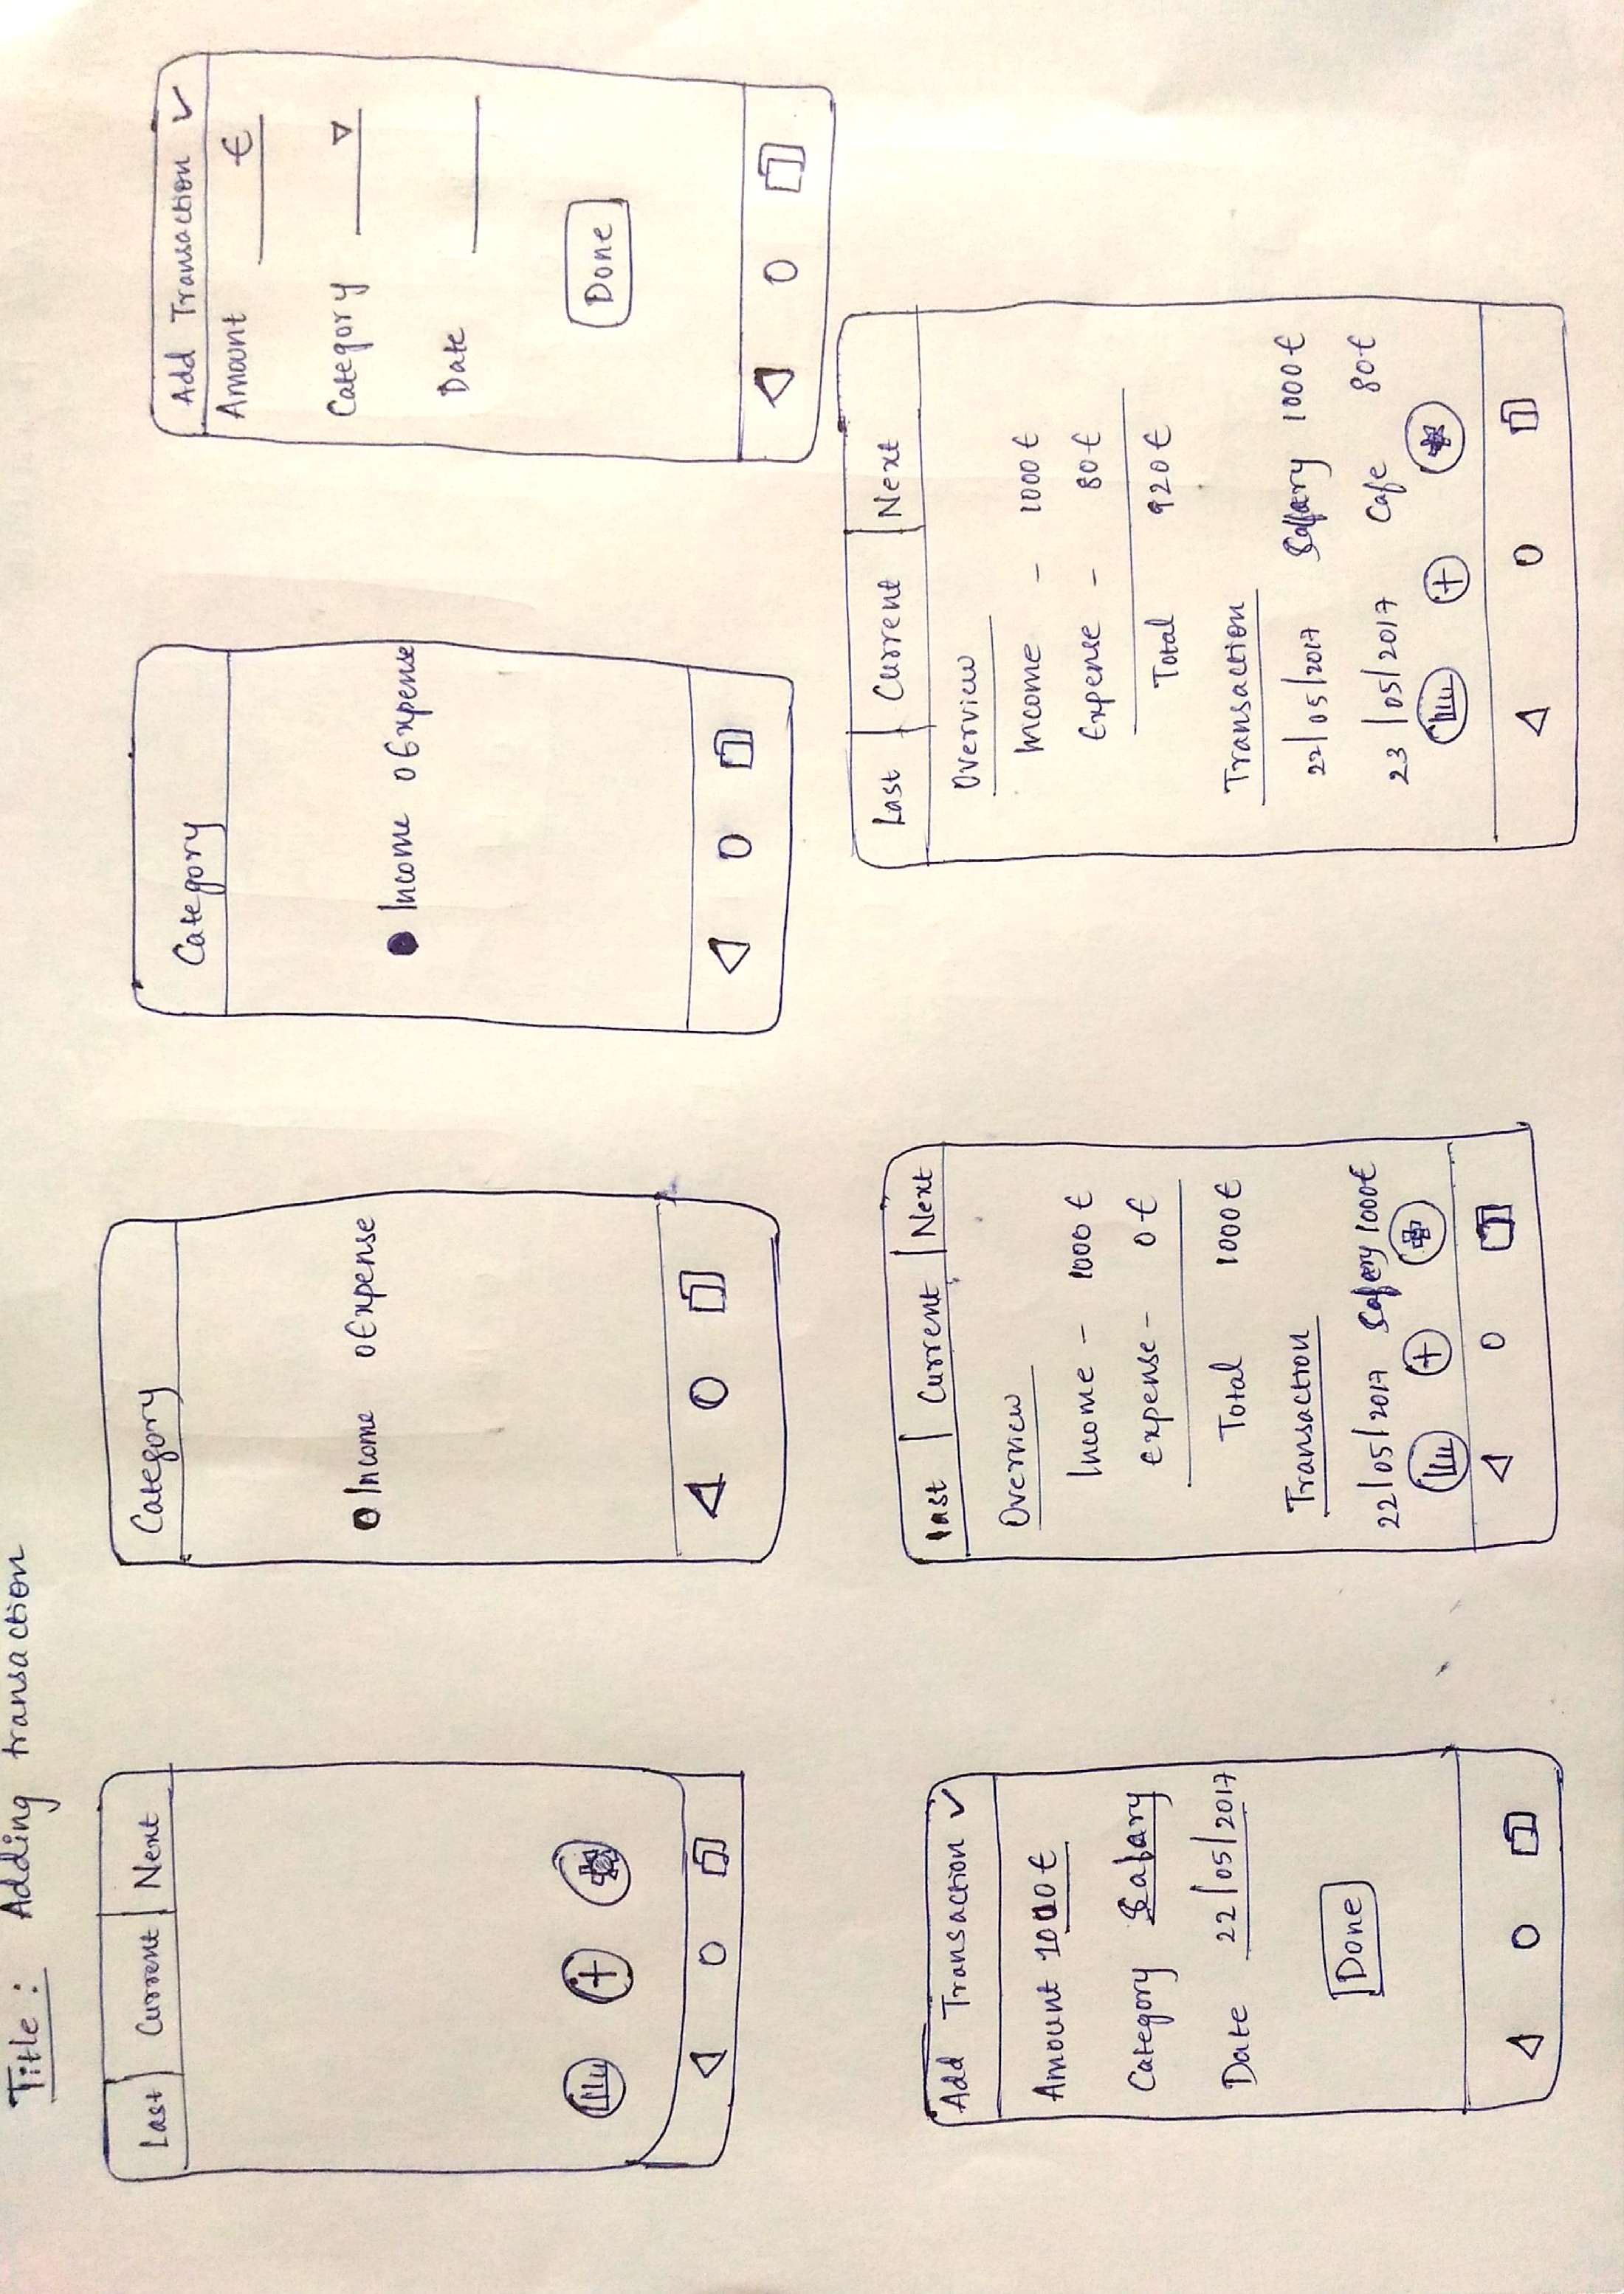 Title : Adding transaction
Last Current Next
Category
Income Expense
Category
Income Expense
Add Transaction ✓
Amount €
Category
Date
Done
Add Transaction ✓
Amount 1000 €
Category Salary
Date 22/05/2017
Done
Last Current Next
Overview
Income - 1000 €
Expense - 0 €
Total 1000 €
Transaction
22/05/2017 Salary 1000 €
Last Current Next
Overview
Income - 1000 €
Expense - 80 €
Total 920 €
Transaction
22/05/2017 Salary 1000 €
23/05/2017 Cafe 80 €